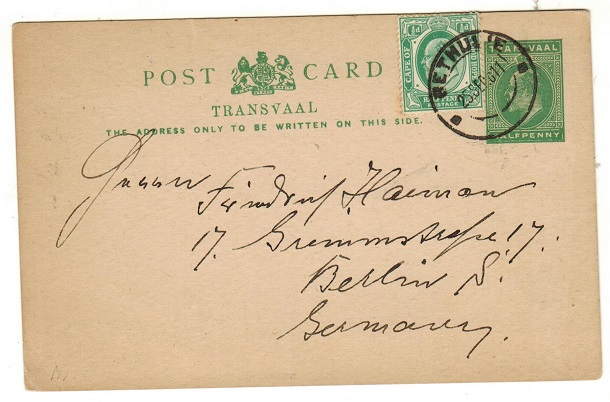 POST CARD
TRANSVAAL
THE ADDRESS ONLY TO BE WRITTEN ON THIS SIDE.
CAPE OF GOOD HOPE
½d ½d
HALFPENNY
POSTAGE
BETHULIE
TRANSVAAL
HALFPENNY
Herrn
Friedrich Haiman
17. Grimmstrasse 17.
Berlin S.
Germany.